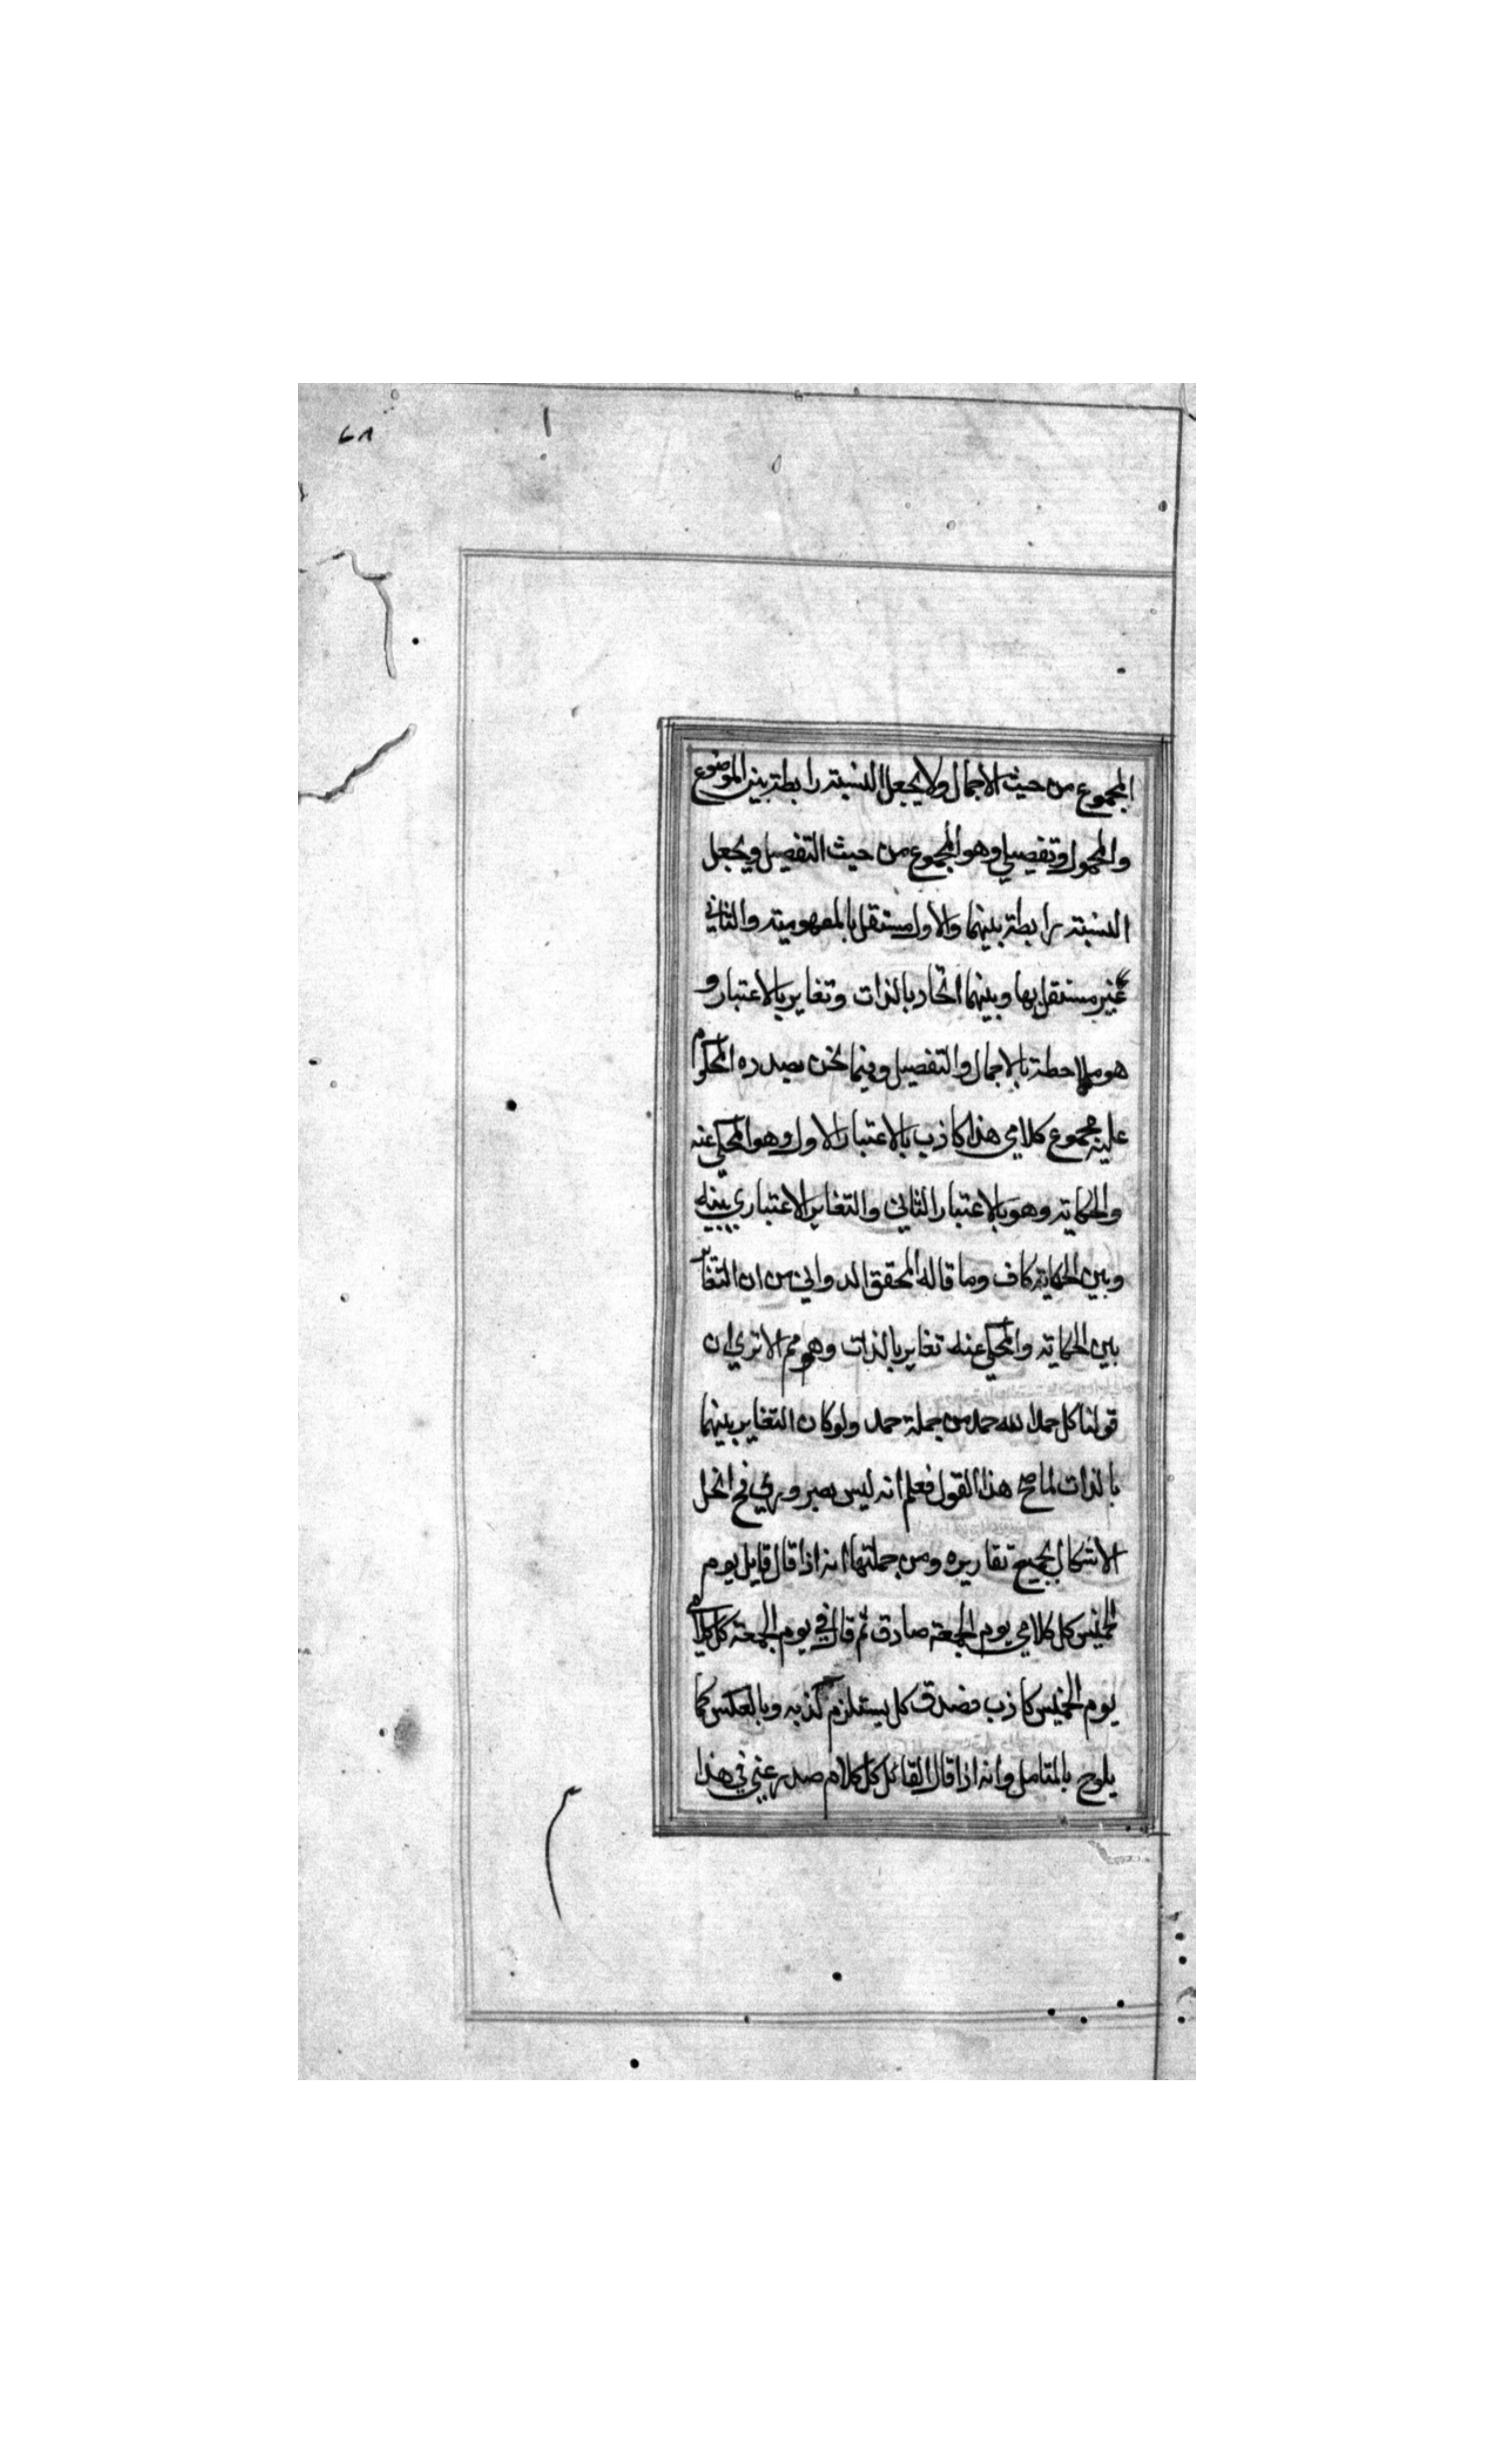 ٤٨
المجموع من حيث الاجمال ولا يجعل النسبة رابطة بين الموضوع
والمحمول وتفصيلي وهو المجموع من حيث التفصيل ويجعل
النسبة رابطة بينهما والاول مستقل بالمفهومية والثاني
غير مستقل بها وبينهما اتحاد بالذات وتغاير بالاعتبار و
هو ملاحظة بالاجمال والتفصيل وفيما نحن بصدده المحكوم
عليه مجموع كلامي هذا كاذب بالاعتبار الاول وهو المحكي عنه
والحكاية وهو بالاعتبار الثاني والتغاير الاعتباري بينه
وبين الحكاية كاف وما قاله المحقق الدواني من ان التغاير
بين الحكاية والمحكي عنه تغاير بالذات وهو مم الا تري ان
قولنا كل حمد لله حمد من جملة حمد ولو كان التغاير بينهما
بالذات لما صح هذا القول فعلم انه ليس بضروري فح انحل
الاشكال بجميع تقاريره ومن جملتها انه اذا قال قايل يوم
الخميس كل كلامي يوم الجمعة صادق ثم قال في يوم الجمعة كل كلامي
يوم الخميس كاذب فصدق كل يستلزم كذبه وبالعكس كما
يلوح بالتامل وانه اذا قال القائل كل كلام صدر عني في هذا